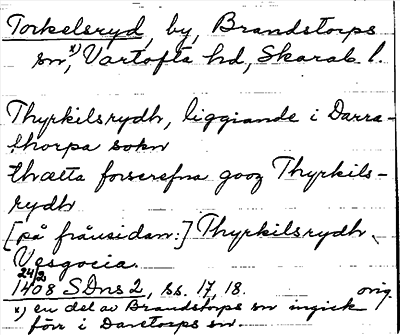 Torkelsryd, by, Brandstorps
sn,x) Vartofta hd, Skarab. l.
Thyrkilsrydh, liggiande i Darra-
thorpa sokn
thætta forscrefna gooz Thyrkils-
rydh
[på frånsidan:] Thyrkilsrydh
Vesgocia.
24/2
1408 SDns 2, ss. 17, 18. orig.
x) en del av Brandstorps sn ingick
förr i Daretorps sn.